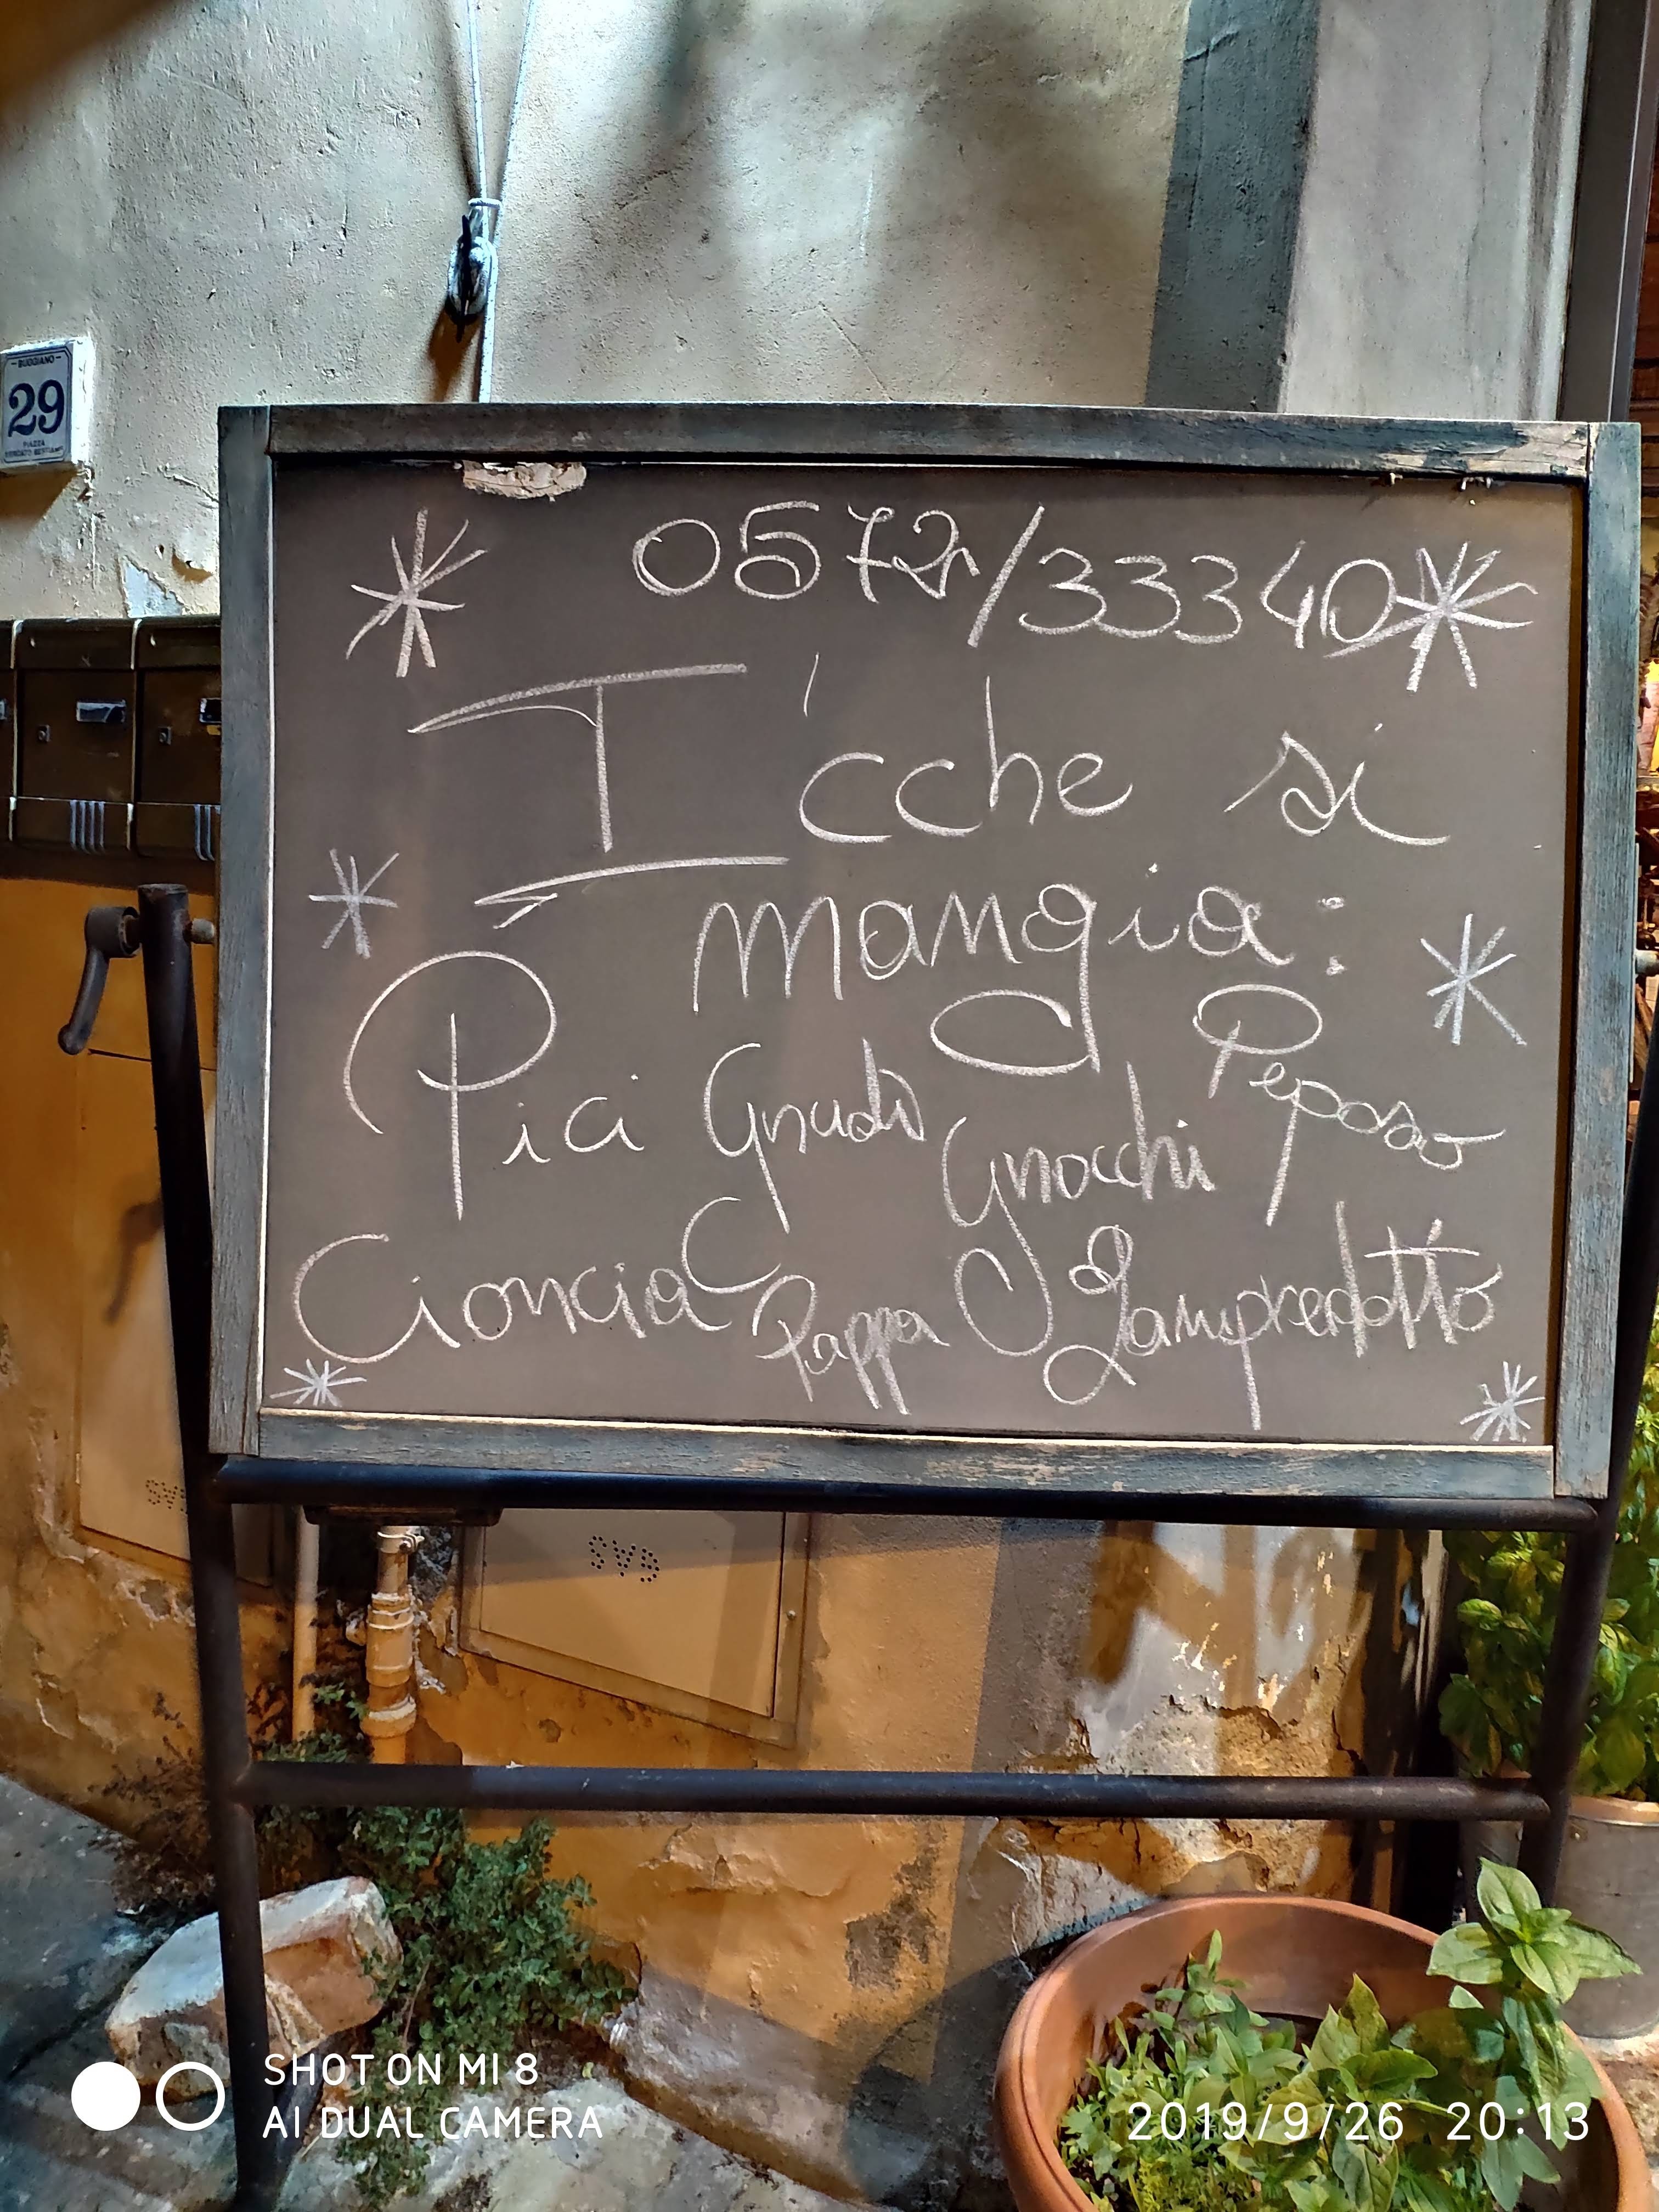 BUGGIANO
29
PIAZZA
MERCATO BESTIAME
0572/33340
I'cche si
mangia:
Pici Gnudi Gnocchi Peposo
Cioncia Pappa Lampredotto
SYS
SHOT ON MI 8
AI DUAL CAMERA
2019/9/26 20:13